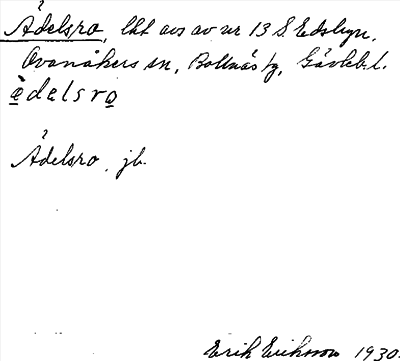 Ådelsro, lht avs av nr 13 S. Edsbyn,
Ovanåkers sn, Bollnäs tg, Gävleb. l.
ądelsro
Ådelsro, jb.
Erik Eriksson 1930.